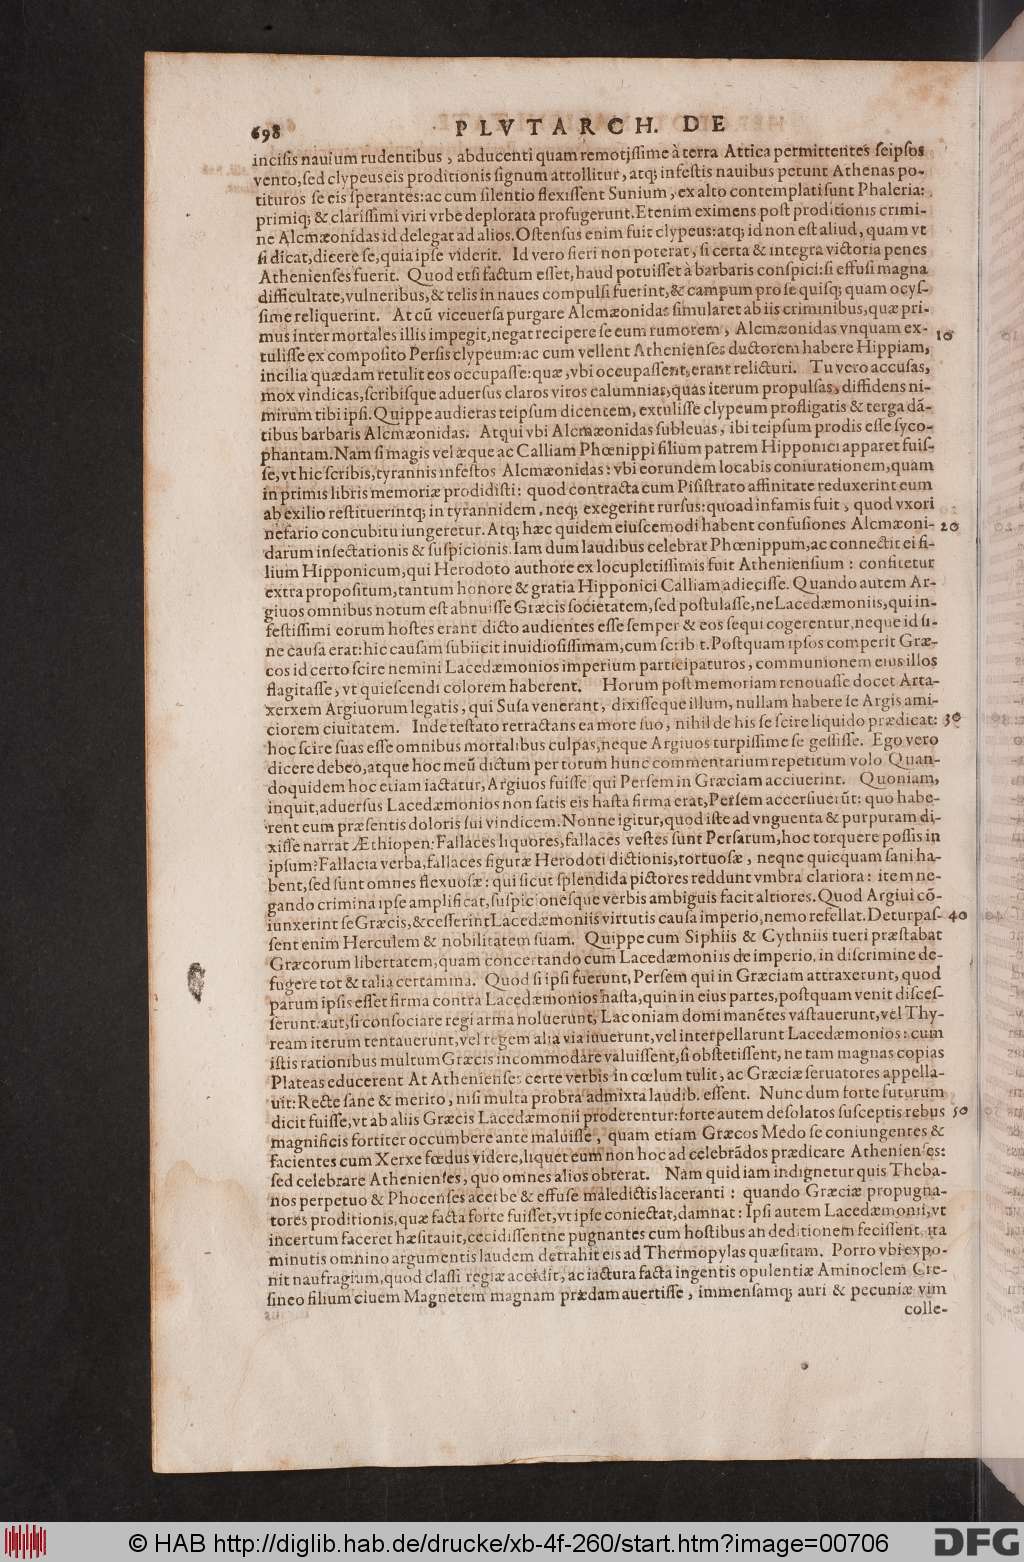 698 PLVTARCH. DE
incisis nauium rudentibus, abducenti quam remotissime à terra Attica permittentes seipsos
vento, sed clypeus eis proditionis signum attollitur, atq; infestis nauibus petunt Athenas po-
tituros se eis sperantes: ac cum silentio flexissent Sunium, ex alto contemplati sunt Phaleria:
primiq; & clarissimi viri vrbe deplorata profugerunt. Etenim eximens post proditionis crimi-
ne Alcmæonidas id delegat ad alios. Ostensus enim fuit clypeus: atq; id non est aliud, quam vt
si dicat, dicere se, quia ipse viderit. Id vero fieri non poterat, si certa & integra victoria penes
Athenienses fuerit. Quod etsi factum esset, haud potuisset à barbaris conspici: si effusi magna
difficultate, vulneribus, & telis in naues compulsi fuerint, & campum pro se quisq; quam ocys-
sime reliquerint. At cũ viceuersa purgare Alcmæonidas simularet ab iis criminibus, quæ pri-
mus inter mortales illis impegit, negat recipere se eum rumorem, Alcmæonidas vnquam ex- 10
tulisse ex composito Persis clypeum: ac cum vellent Athenienses ductorem habere Hippiam,
incilia quædam retulit eos occupasse: quæ, vbi occupassent, erant relicturi. Tu vero accusas,
mox vindicas, scribisque aduersus claros viros calumnias, quas iterum propulsas, diffidens ni-
mirum tibi ipsi. Quippe audieras teipsum dicentem, extulisse clypeum profligatis & terga dã-
tibus barbaris Alcmæonidas. Atqui vbi Alcmæonidas subleuas, ibi teipsum prodis esse syco-
phantam. Nam si magis vel æque ac Calliam Phœnippi filium patrem Hipponici apparet fuis-
se, vt hic scribis, tyrannis infestos Alcmæonidas: vbi eorundem locabis coniurationem, quam
in primis libris memoriæ prodidisti: quod contracta cum Pisistrato affinitate reduxerint eum
ab exilio restituerintq; in tyrannidem, neq; exegerint rursus: quoad infamis fuit, quod vxori
nefario concubitu iungeretur. Atq; hæc quidem eiuscemodi habent confusiones Alcmæoni- 20
darum insectationis & suspicionis. Iam dum laudibus celebrat Phœnippum, ac connectit ei fi-
lium Hipponicum, qui Herodoto authore ex locupletissimis fuit Atheniensium: confitetur
extra propositum, tantum honore & gratia Hipponici Calliam adiecisse. Quando autem Ar-
giuos omnibus notum est abnuisse Græcis societatem, sed postulasse, ne Lacedæmoniis, qui in-
festissimi eorum hostes erant dicto audientes esse semper & eos sequi cogerentur, neque id si-
ne causa erat: hic causam subiicit inuidiosissimam, cum scribit. Postquam ipsos comperit Græ-
cos id certo scire nemini Lacedæmonios imperium participaturos, communionem eius illos
flagitasse, vt quiescendi colorem haberent. Horum post memoriam renouasse docet Arta-
xerxem Argiuorum legatis, qui Susa venerant, dixisseque illum, nullam habere se Argis ami-
ciorem ciuitatem. Inde testato retractans ea more suo, nihil de his se scire liquido prædicat: 30
hoc scire suas esse omnibus mortalibus culpas, neque Argiuos turpissime se gessisse. Ego vero
dicere debeo, atque hoc meũ dictum per totum hunc commentarium repetitum volo Quan-
doquidem hoc etiam iactatur, Argiuos fuisse, qui Persem in Græciam acciuerint. Quoniam,
inquit, aduersus Lacedæmonios non satis eis hasta firma erat, Persem accersiuerũt: quo habe-
rent eum præsentis doloris sui vindicem. Nonne igitur, quod iste ad vnguenta & purpuram di-
xisse narrat Æthiopen: Fallaces liquores, fallaces vestes sunt Persarum, hoc torquere possis in
ipsum? Fallacia verba, fallaces figuræ Herodoti dictionis, tortuosæ, neqne quicquam sani ha-
bent, sed sunt omnes flexuosæ: qui sicut splendida pictores reddunt vmbra clariora: item ne-
gando crimina ipse amplificat, suspicionesque verbis ambiguis facit altiores. Quod Argiui cõ-
iunxerint se Græcis, & cesserint Lacedæmoniis virtutis causa imperio, nemo refellat. Deturpas- 40
sent enim Herculem & nobilitatem suam. Quippe cum Siphiis & Cythniis tueri præstabat
Græcorum libertatem, quam concertando cum Lacedæmoniis de imperio, in discrimine de-
fugere tot & talia certamina. Quod si ipsi fuerunt, Persem qui in Græciam attraxerunt, quod
parum ipsis esset firma contra Lacedæmonios hasta, quin in eius partes, postquam venit disces-
serunt: aut, si consociare regi arma noluerunt, Laconiam domi manẽtes vastauerunt, vel Thy-
ream iterum tentauerunt, vel regem alia via iuuerunt, vel interpellarunt Lacedæmonios: cum
istis rationibus multum Græcis incommodare valuissent, si obstetissent, ne tam magnas copias
Plateas educerent At Athenienses certe verbis in cœlum tulit, ac Græciæ seruatores appella-
uit: Recte sane & merito, nisi multa probra admixta laudib. essent. Nunc dum forte futurum
dicit fuisse, vt ab aliis Græcis Lacedæmonii proderentur: forte autem desolatos susceptis rebus 50
magnificis fortiter occumbere ante maluisse, quam etiam Græcos Medo se coniungentes &
facientes cum Xerxe fœdus videre, liquet eum non hoc ad celebrãdos prædicare Athenienses:
sed celebrare Athenienses, quo omnes alios obterat. Nam quid iam indignetur quis Theba-
nos perpetuo & Phocenses acerbe & effuse maledictis laceranti: quando Græciæ propugna-
tores proditionis, quæ facta forte fuisset, vt ipse coniectat, damnat: Ipsi autem Lacedæmonii, vt
incertum faceret hæsitauit, cecidissentne pugnantes cum hostibus an deditionem fecissent, ita
minutis omnino argumentis laudem detrahit eis ad Thermopylas quæsitam. Porro vbi expo-
nit naufragium, quod classi regiæ accidit, ac iactura facta ingentis opulentiæ Aminoclem Cre-
sineo filium ciuem Magnetem magnam prædam auertisse, immensamq; auri & pecuniæ vim
colle-
© HAB http://diglib.hab.de/drucke/xb-4f-260/start.htm?image=00706
DFG